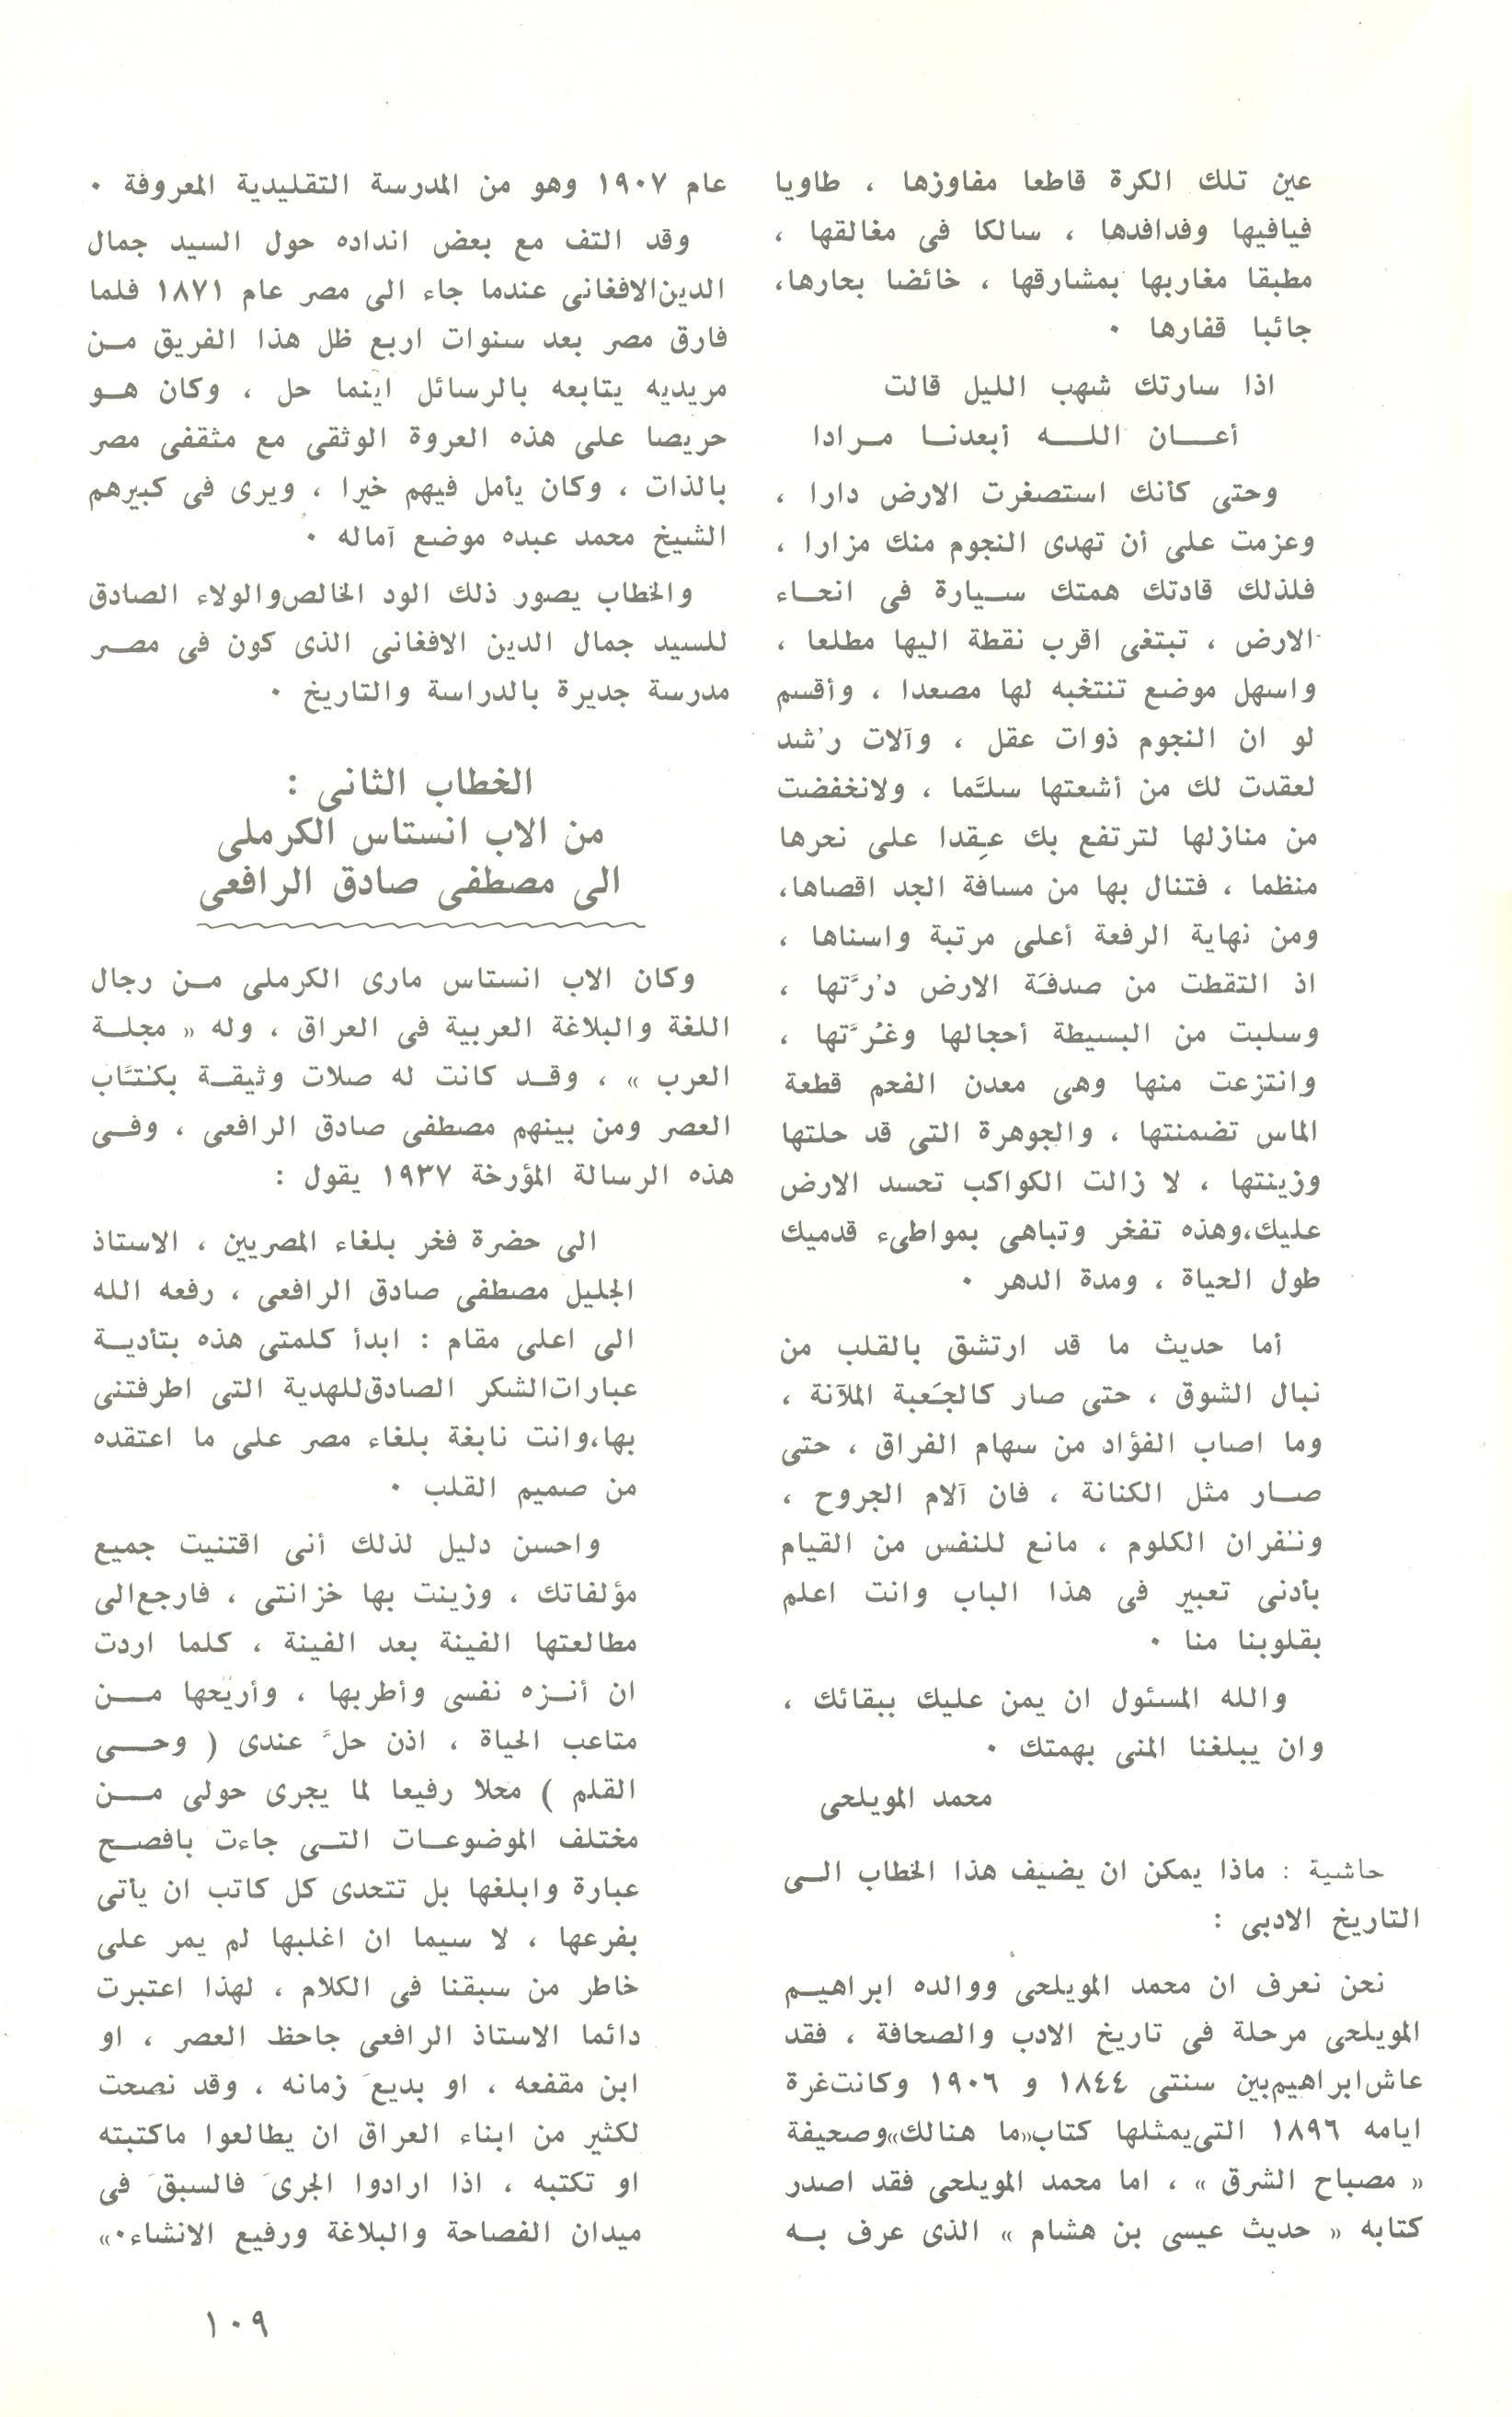 عين تلك الكرة قاطعا مفاوزها ، طاويا
فيافيها وفدافدها ، سالكا فى مغالقها ،
مطبقا مغاربها بمشارقها ، خائضا بحارها،
جائبا قفارها ٠
اذا سارتك شهب الليل قالت
أعـــان اللـــه أبعدنـا مـرادا
وحتى كأنك استصغرت الارض دارا ،
وعزمت على أن تهدى النجوم منك مزارا ،
فلذلك قادتك همتك سـيارة فى انحـاء
الارض ، تبتغى اقرب نقطة اليها مطلعا ،
واسهل موضع تنتخبه لها مصعدا ، وأقسم
لو ان النجوم ذوات عقل ، وآلات رُشد
لعقدت لك من أشعتها سلـَّما ، ولانخفضت
من منازلها لترتفع بك عـِقدا على نحرها
منظما ، فتنال بها من مسافة الجد اقصاها،
ومن نهاية الرفعة أعلى مرتبة واسناها ،
اذ التقطت من صدفـَة الارض دُرَّتها ،
وسلبت من البسيطة أحجالها وغـُرَّتها ،
وانتزعت منها وهى معدن الفحم قطعة
الماس تضمنتها ، والجوهرة التى قد حلتها
وزينتها ، لا زالت الكواكب تحسد الارض
عليك،وهذه تفخر وتباهى بمواطىء قدميك
طول الحياة ، ومدة الدهر ٠
أما حديث ما قد ارتشق بالقلب من
نبال الشوق ، حتى صار كالجـَعبة الملآنة ،
وما اصاب الفؤاد من سهام الفراق ، حتى
صـار مثل الكنانة ، فان آلام الجروح ،
ونـُفران الكلوم ، مانع للنفس من القيام
بأدنى تعبير فى هذا الباب وانت اعلم
بقلوبنا منا ٠
والله المسئول ان يمن عليك ببقائك ،
وان يبلغنا المنى بهمتك ٠
محمد المويلحى
حاشية : ماذا يمكن ان يضيف هذا الخطاب الـى
التاريخ الادبى :
نحن نعرف ان محمد المويلحى ووالده ابراهيـم
المويلحى مرحلة فى تاريخ الادب والصحافة ، فقد
عاش ابراهيم بين سنتى ١٨٤٤ و ١٩٠٦ وكانت غرة
ايامه ١٨٩٦ التى يمثلها كتاب «ما هنالك» وصحيفة
« مصباح الشرق » ، اما محمد المويلحى فقد اصدر
كتابه « حديث عيسى بن هشام » الذى عرف بـه
عام ١٩٠٧ وهو من المدرسة التقليدية المعروفة ٠
وقد التف مع بعض انداده حول السيد جمال
الدين الافغانى عندما جاء الى مصر عام ١٨٧١ فلما
فارق مصر بعد سنوات اربع ظل هذا الفريق مـن
مريديه يتابعه بالرسائل اينما حل ، وكان هـو
حريصا على هذه العروة الوثقى مع مثقفى مصر
بالذات ، وكان يأمل فيهم خيرا ، ويرى فى كبيرهم
الشيخ محمد عبده موضع آماله ٠
والخطاب يصور ذلك الود الخالص والولاء الصادق
للسيد جمال الدين الافغانى الذى كون فى مصـر
مدرسة جديرة بالدراسة والتاريخ ٠
الخطاب الثانى :
من الاب انستاس الكرملى
الى مصطفى صادق الرافعى
وكان الاب انستاس مارى الكرملى مـن رجال
اللغة والبلاغة العربية فى العراق ، وله « مجلـة
العرب » ، وقـد كانت له صلات وثيقـة بكـُتـَّاب
العصر ومن بينهم مصطفى صادق الرافعى ، وفـى
هذه الرسالة المؤرخة ١٩٣٧ يقول :
الى حضرة فخر بلغاء المصريين ، الاستاذ
الجليل مصطفى صادق الرافعى ، رفعه الله
الى اعلى مقام : ابدأ كلمتى هذه بتأديـة
عبارات الشكر الصادق للهدية التى اطرفتنى
بها،وانت نابغة بلغاء مصر على ما اعتقده
من صميم القلب ٠
واحسن دليل لذلك أنى اقتنيت جميع
مؤلفاتك ، وزينت بها خزانتى ، فارجع الى
مطالعتها الفينة بعد الفينة ، كلما اردت
ان أنـزه نفسى وأطربها ، وأريّحها مــن
متاعب الحياة ، اذن حلَّ عندى ( وحــى
القلم ) محلا رفيعا لما يجرى حولى مــن
مختلف الموضوعـات التـى جاءت بافصـح
عبارة وابلغها بل تتحدى كل كاتب ان يأتى
بفرعها ، لا سيما ان اغلبها لم يمر على
خاطر من سبقنا فى الكلام ، لهذا اعتبرت
دائما الاستاذ الرافعى جاحظ العصر ، او
ابن مقفعه ، او بديعَ زمانه ، وقد نصحت
لكثير من ابناء العراق ان يطالعوا ماكتبته
او تكتبه ، اذا ارادوا الجرىَ فالسبقَ فى
ميدان الفصاحة والبلاغة ورفيع الانشاء٠»
١٠٩